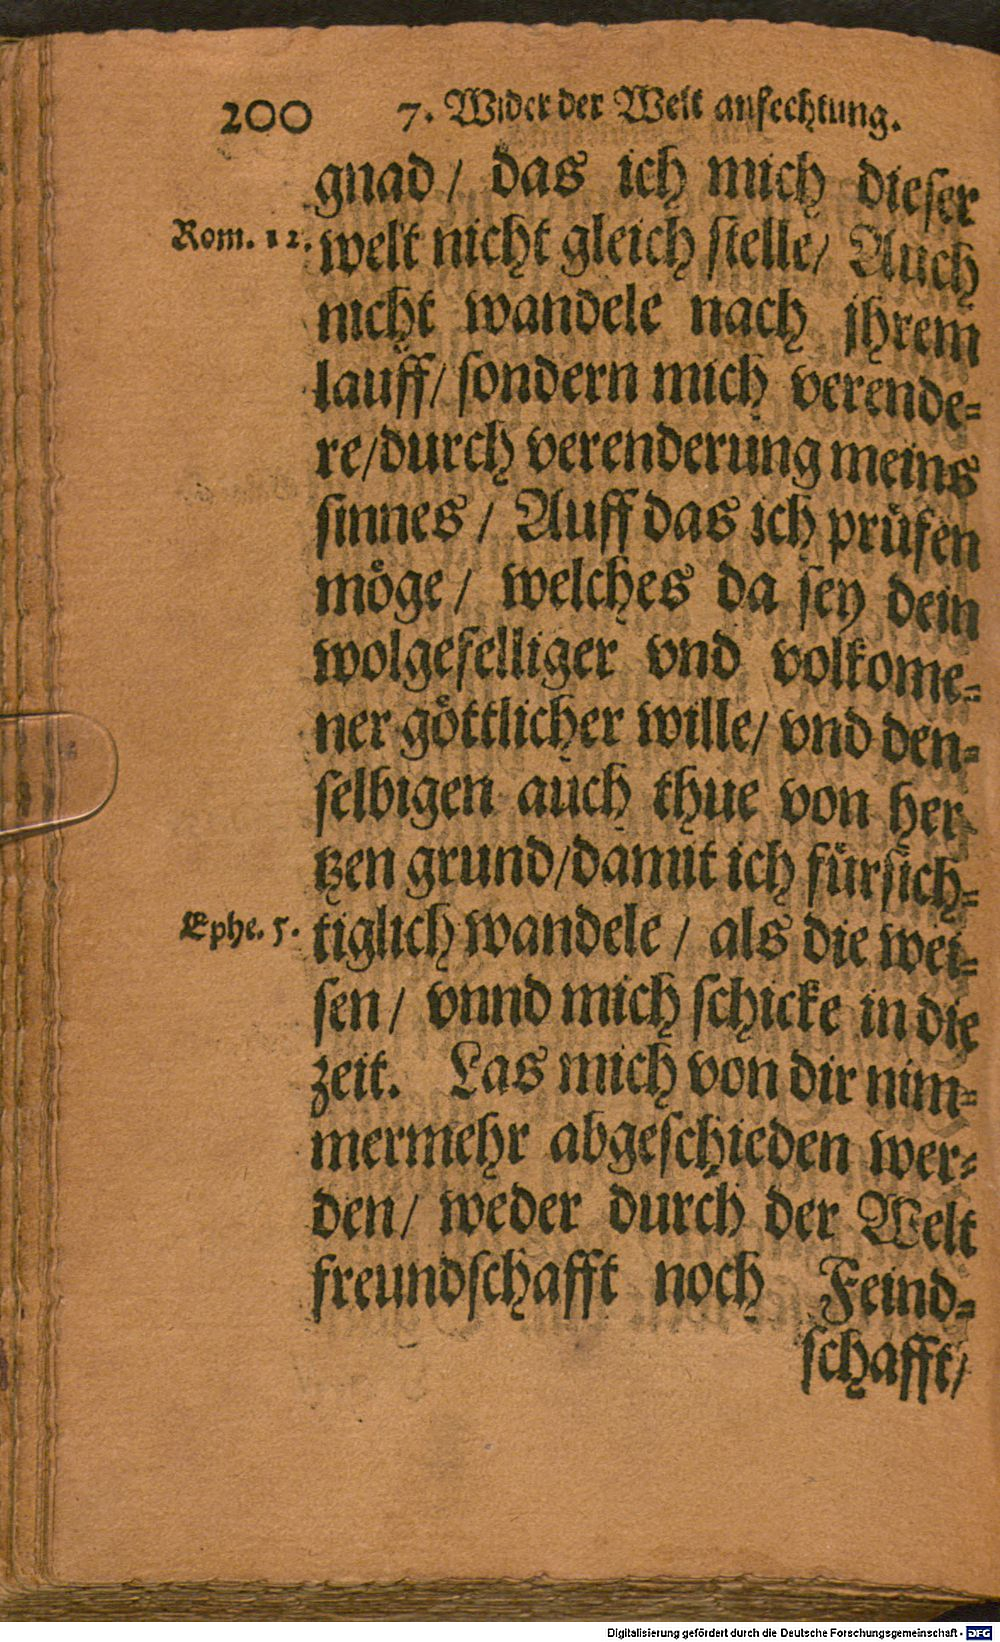 200 7. Wider der Welt anfechtung.
gnad / das ich mich dieser
Rom. 12. welt nicht gleich stelle / Auch
nicht wandele nach jhrem
lauff / sondern mich verende-
re / durch verenderung meins
sinnes / Auff das ich prüfen
möge / welches da sey dein
wolgefelliger vnd volkome-
ner göttlicher wille / vnd den-
selbigen auch thue von her
tzen grund / damit ich fürsich-
Ephe. 5. tiglich wandele / als die wei-
sen / vnnd mich schicke in die
zeit. Las mich von dir nim-
mermehr abgeschieden wer-
den / weder durch der Welt
freundschafft noch Feind-
schafft /
Digitalisierung gefördert durch die Deutsche Forschungsgemeinschaft - DFG